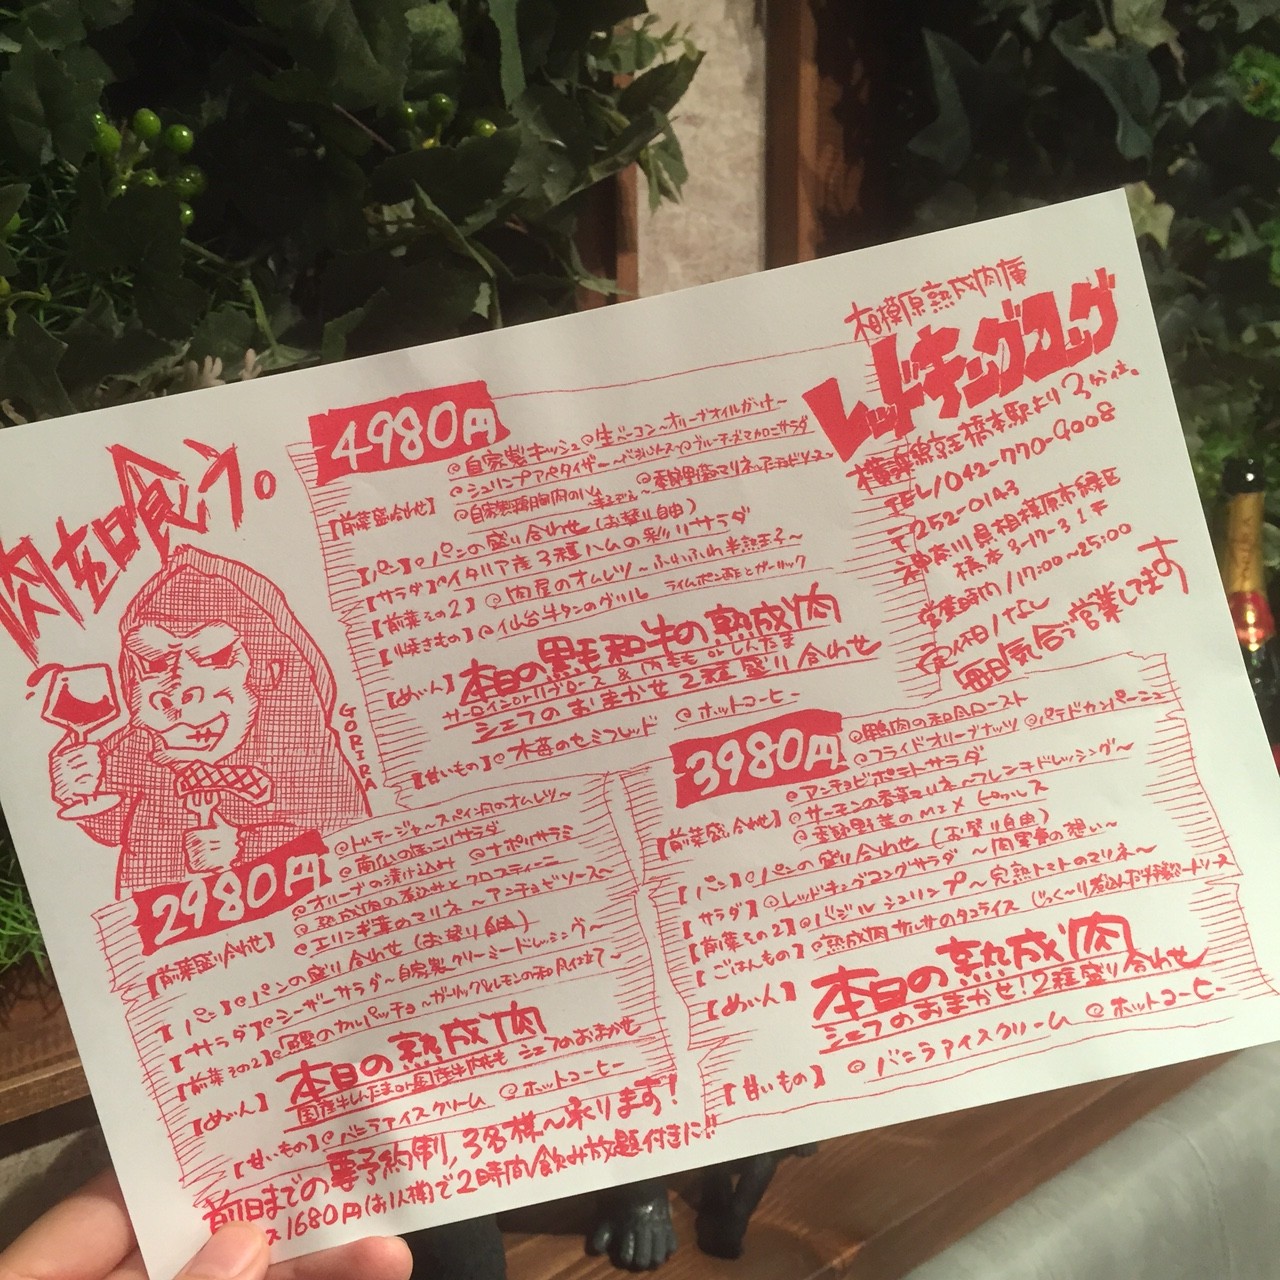 肉を喰う。
GORIRA
相模原熟成肉庫
レッドキングコング
横浜線京王橋本駅より3分位。
TEL/042-770-9008
〒252-0143
神奈川県相模原市緑区
橋本3-17-3 1F
営業時間/17:00~25:00
定休日/なし
毎日気合で営業してます
4980円
【前菜盛り合わせ】
@自家製キッシュ @生ベーコン~オリーブオイルがけ~
@シュリンプアペタイザー @ブルーチーズマカロニサラダ
@自家製鶏胸肉のハム @季節野菜のマリネ
【パン】@パンの盛り合わせ(お替り自由)
【サラダ】@イタリア産3種ハムの彩りサラダ
【前菜その2】@肉屋のオムレツ~ふわふわ半熟玉子~
【焼きもの】@仙台牛タンのグリル ライムポン酢とガーリック
【めいん】本日の黒毛和牛の熟成肉
サーロインorリブロース&内ももorしんたま
シェフのおまかせ2種盛り合わせ
【甘いもの】@木苺のセミフレッド @ホットコーヒー
2980円
【前菜盛り合わせ】
@トルテージャ~スペイン風のオムレツ~
@南仏のほっこりサラダ
@オリーブの漬け込み @ナポリサラミ
@熟成肉の煮込みとクロスティーニ
@エリンギ茸のマリネ~アンチョビソース~
【パン】@パンの盛り合わせ(お替り自由)
【サラダ】@シーザーサラダ~自家製クリーミードレッシング~
【前菜その2】@鰹のカルパッチョ~ガーリック&レモンの和風仕立て~
【めいん】本日の熟成肉
国産牛しんたまor国産牛内もも シェフのおまかせ
【甘いもの】@バニラアイスクリーム @ホットコーヒー
3980円
【前菜盛り合わせ】
@鴨肉の和風ロースト
@フライドオリーブナッツ @パテドカンパーニュ
@アンチョビポテトサラダ
@サーモンの香草マリネ~フレンチドレッシング~
@季節野菜のMIXピクルス
【パン】@パンの盛り合わせ(お替り自由)
【サラダ】@レッドキングコングサラダ~肉業界の想い~
【前菜その2】@バジルシュリンプ~完熟トマトのマリネ~
【ごはんもの】@熟成肉サルサのタコライス
【めいん】本日の熟成肉
シェフのおまかせ!2種盛り合わせ
【甘いもの】@バニラアイスクリーム @ホットコーヒー
前日までの要予約制,3名様~承ります!
ス1680円(お1人様)で2時間飲み放題付きに!!